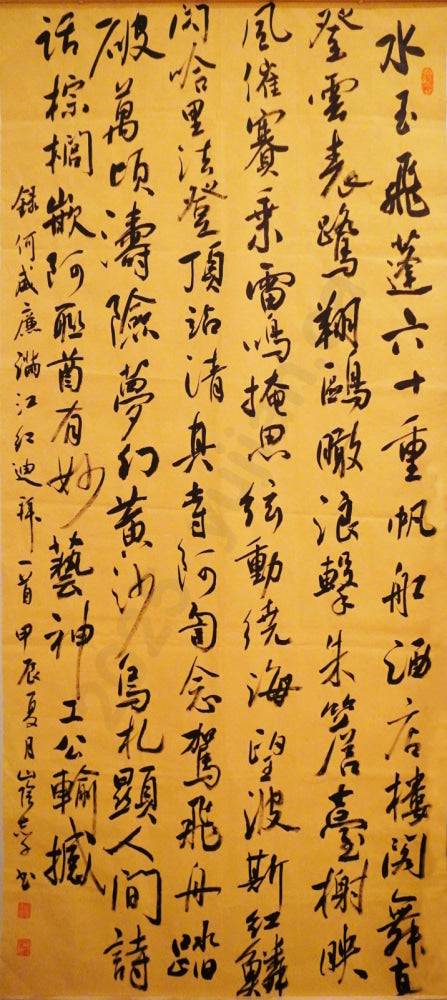 水玉飛蓬六十重帆船酒店樓閣舞直
登雲表鷺翔鷗瞰浪擊朱簷臺榭映
風催賽乘雷鳴掩思弦動繞海望波斯紅鱗
閃哈里法登頂站清真寺阿訇念駕飛舟踏
破萬頃濤險夢幻黃沙烏札顯人間詩
話棕櫚嵌阿聯酋有妙藝神工公輸撼
錄何咸廉滿江紅迪拜一首甲辰夏月 書